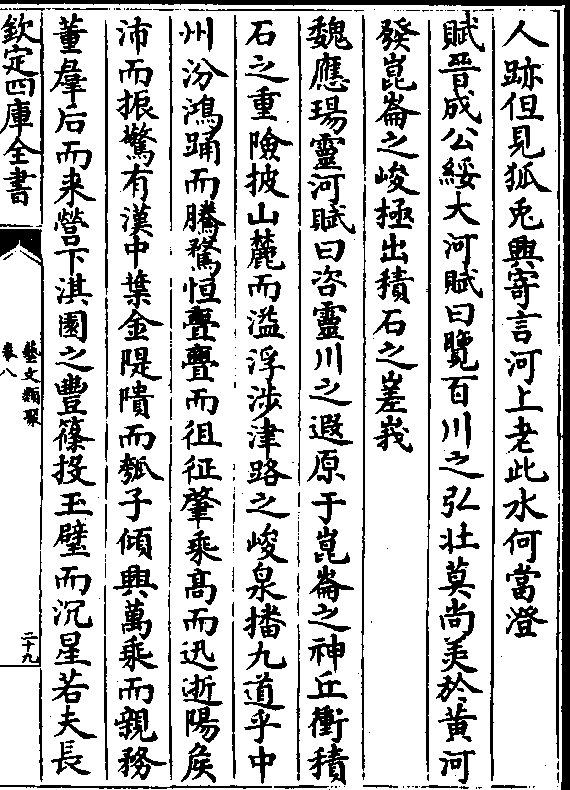 人跡但見狐兎興寄言河上老此水何當澄
賦晉成公綏大河賦曰覽百川之弘壯莫尚美於黃河
發崑崙之峻極出積石之嵳峩
魏應瑒靈河賦曰咨靈川之遐原于崑崙之神丘衝積
石之重險披山麓而溢浮涉津路之峻泉播九道乎中
州汾鴻踊而騰騖恒亹亹而徂征肇乘高而迅逝陽侯
沛而振驚有漢中葉金隄隤而瓠子傾興萬乘而親務
董羣后而来營下淇園之豐篠投玉璧而沉星若夫長
欽定四庫全書
藝文類聚
卷八
二十九